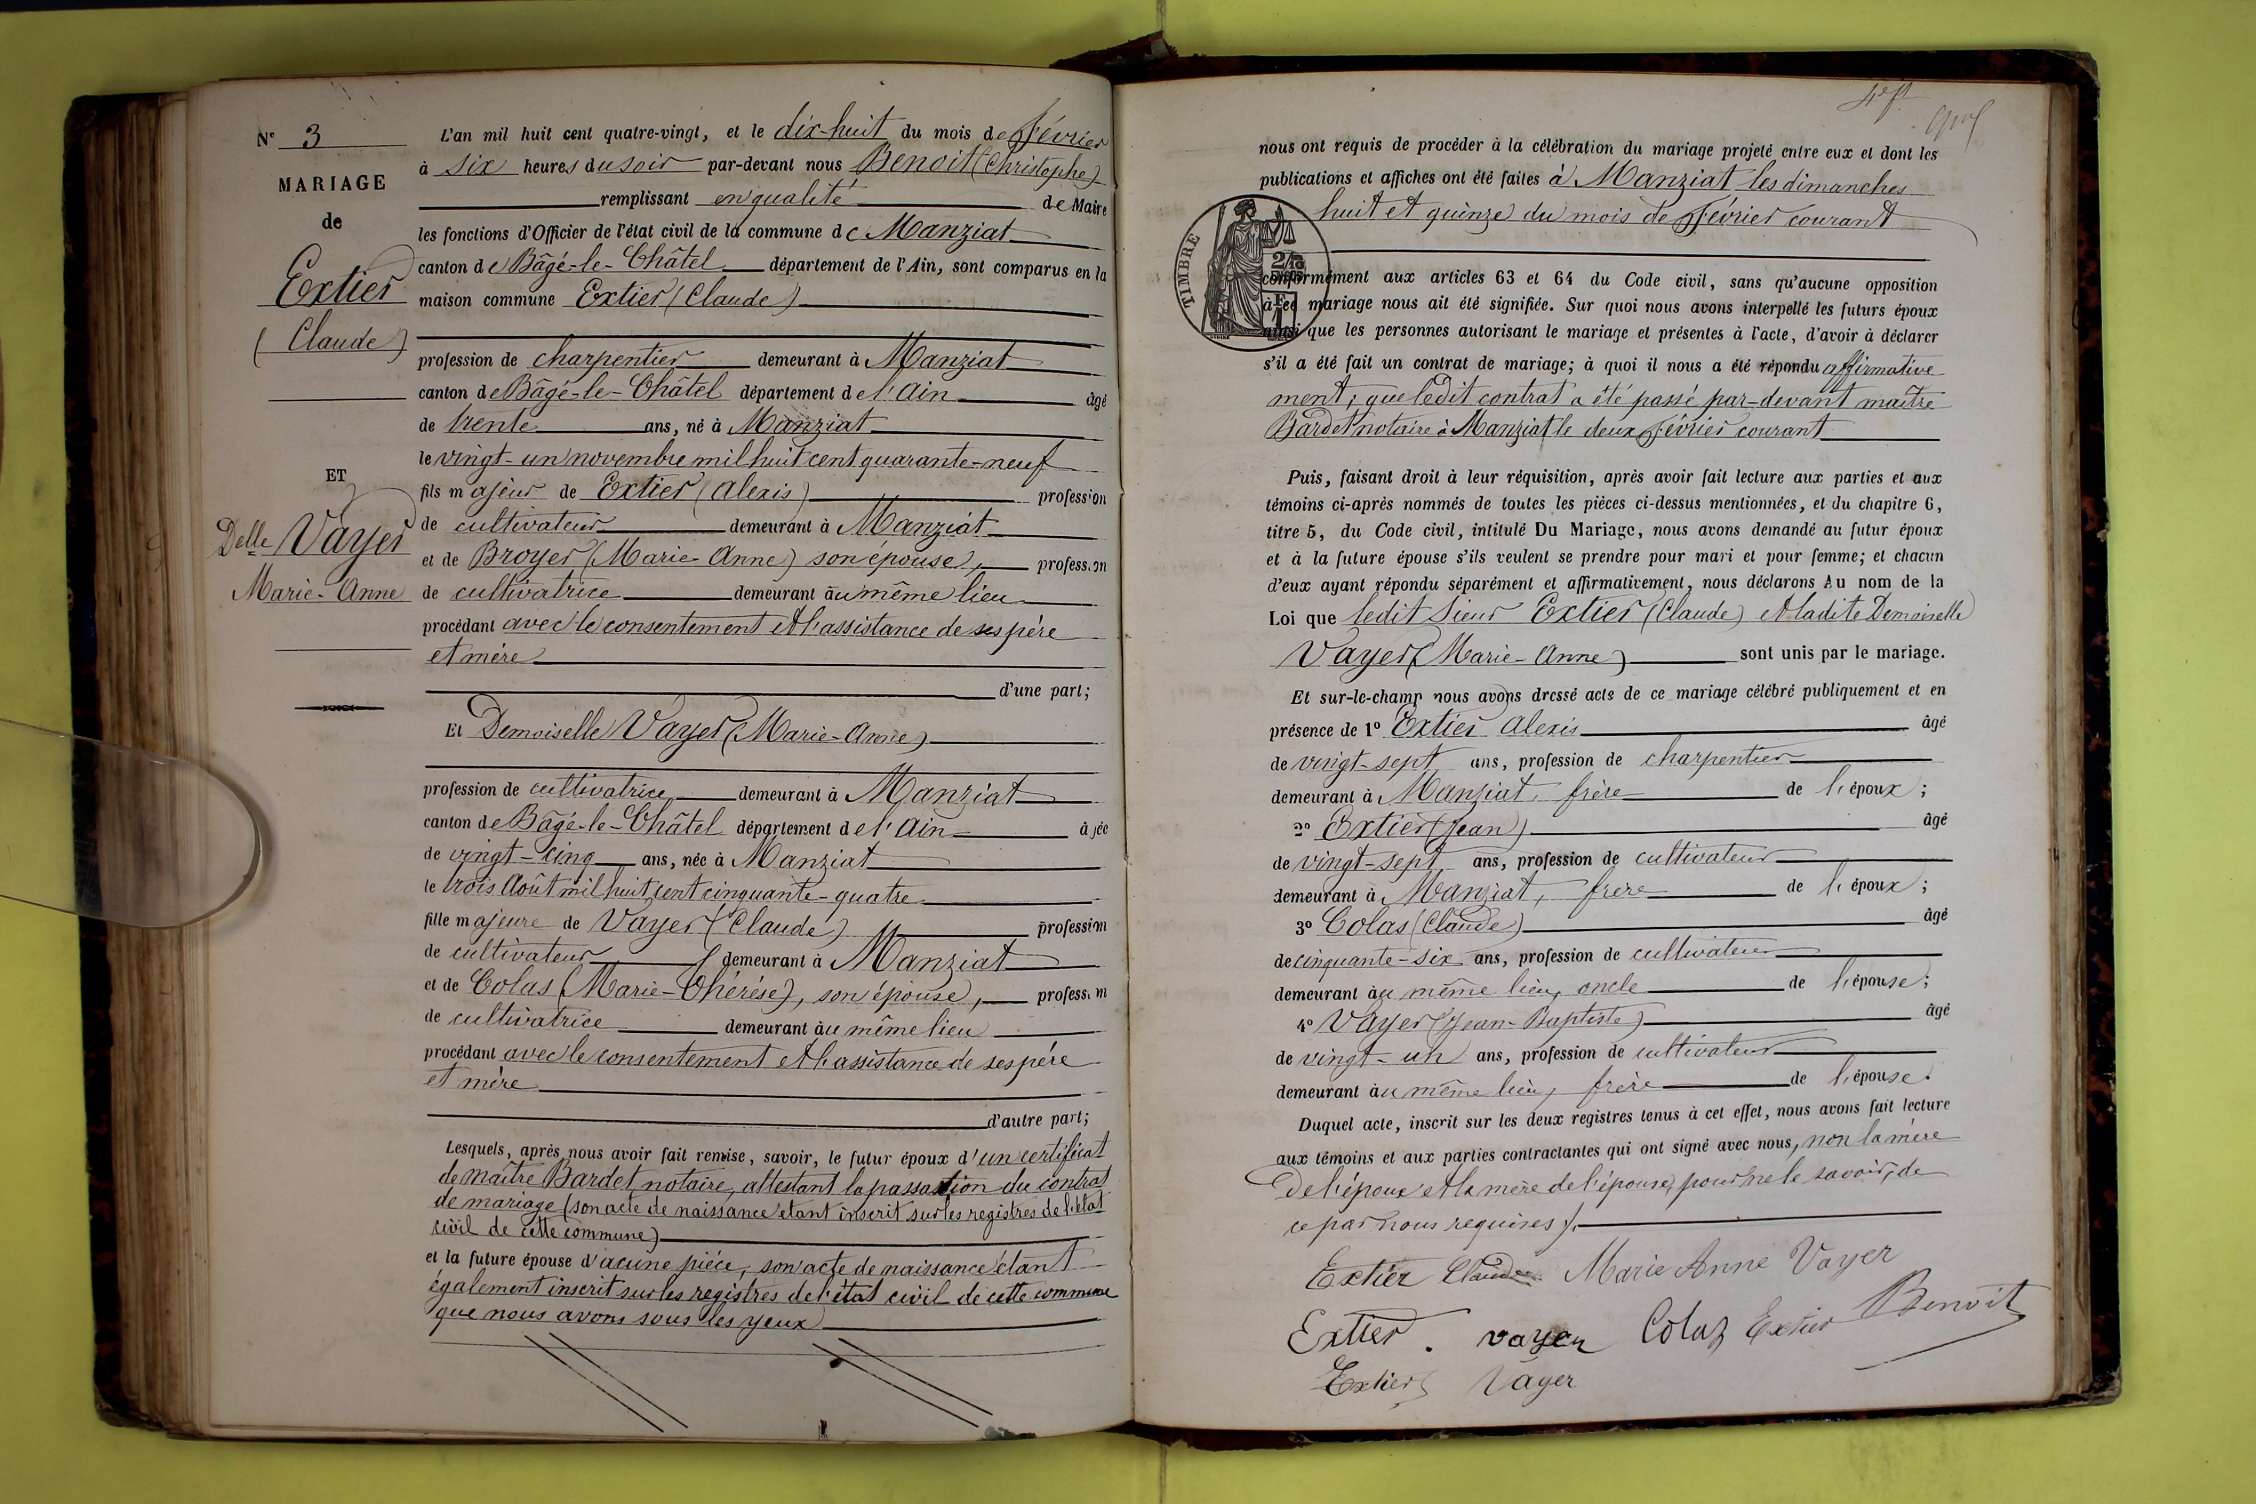 N° 3
MARIAGE
de
Extier
(Claude)
ET
Delle Vayer
Marie-Anne
L'an mil huit cent quatre-vingt, et le dix-huit du mois de Février
à six heures du soir par-devant nous Benoit (Christophe)
remplissant en qualité de Maire
les fonctions d'Officier de l'état civil de la commune de Manziat
canton de Bâgé-le-Châtel département de l'Ain, sont comparus en la
maison commune Extier (Claude)
profession de charpentier demeurant à Manziat
canton de Bâgé-le-Châtel département de l'Ain âgé
de trente ans, né à Manziat
le vingt-un novembre mil huit cent quarante-neuf
fils majeur de Extier (Alexis) profession
de cultivateur demeurant à Manziat
et de Broyer (Marie-Anne) son épouse, profession
de cultivatrice demeurant au même lieu
procédant avec le consentement et l'assistance de ses père
et mère
d'une part;
Et Demoiselle Vayer (Marie-Anne)
profession de cultivatrice demeurant à Manziat
canton de Bâgé-le-Châtel département de l'Ain âgée
de vingt-cinq ans, née à Manziat
le trois Août mil huit cent cinquante-quatre
fille majeure de Vayer (Claude) profession
de cultivateur demeurant à Manziat
et de Colas (Marie-Thérèse), son épouse, profession
de cultivatrice demeurant au même lieu
procédant avec le consentement et l'assistance de ses père
et mère
d'autre part;
Lesquels, après nous avoir fait remise, savoir, le futur époux d'un certificat
de maître Bardet notaire, attestant la passation du contrat
de mariage (son acte de naissance étant inscrit sur les registres de l'état
civil de cette commune)
et la future épouse d'acune pièce, son acte de naissance étant
également inscrit sur les registres de l'état civil de cette commune
que nous avons sous les yeux
nous ont requis de procéder à la célébration du mariage projeté entre eux et dont les
publications et affiches ont été faites à Manziat les dimanches
huit et quinze du mois de Février courant
TIMBRE
conformément aux articles 63 et 64 du Code civil, sans qu'aucune opposition
à ce mariage nous ait été signifiée. Sur quoi nous avons interpellé les futurs époux
ainsi que les personnes autorisant le mariage et présentes à l'acte, d'avoir à déclarer
s'il a été fait un contrat de mariage; à quoi il nous a été répondu affirmative
ment, que ledit contrat a été passé par-devant maître
Bardet notaire à Manziat le deux Février courant
Puis, faisant droit à leur réquisition, après avoir fait lecture aux parties et aux
témoins ci-après nommés de toutes les pièces ci-dessus mentionnées, et du chapitre 6,
titre 5, du Code civil, intitulé Du Mariage, nous avons demandé au futur époux
et à la future épouse s'ils veulent se prendre pour mari et pour femme; et chacun
d'eux ayant répondu séparément et affirmativement, nous déclarons Au nom de la
Loi que ledit Sieur Extier (Claude) et ladite Demoiselle
Vayer (Marie-Anne) sont unis par le mariage.
Et sur-le-champ nous avons dressé acte de ce mariage célébré publiquement et en
présence de 1° Extier Alexis âgé
de vingt-sept ans, profession de charpentier
demeurant à Manziat, frère de l'époux;
2° Extier (Jean) âgé
de vingt-sept ans, profession de cultivateur
demeurant à Manziat, frère de l'époux;
3° Colas (Claude) âgé
de cinquante-six ans, profession de cultivateur
demeurant au même lieu, oncle de l'épouse;
4° Vayer (Jean-Baptiste) âgé
de vingt-un ans, profession de cultivateur
demeurant au même lieu, frère de l'épouse.
Duquel acte, inscrit sur les deux registres tenus à cet effet, nous avons fait lecture
aux témoins et aux parties contractantes qui ont signé avec nous, non la mère
de l'époux et la mère de l'épouse, pour ne le savoir, de
ce par nous requises.
Extier Claude Marie Anne Vayer
Extier. vayer Colas Extier Benoit
Extier Vayer